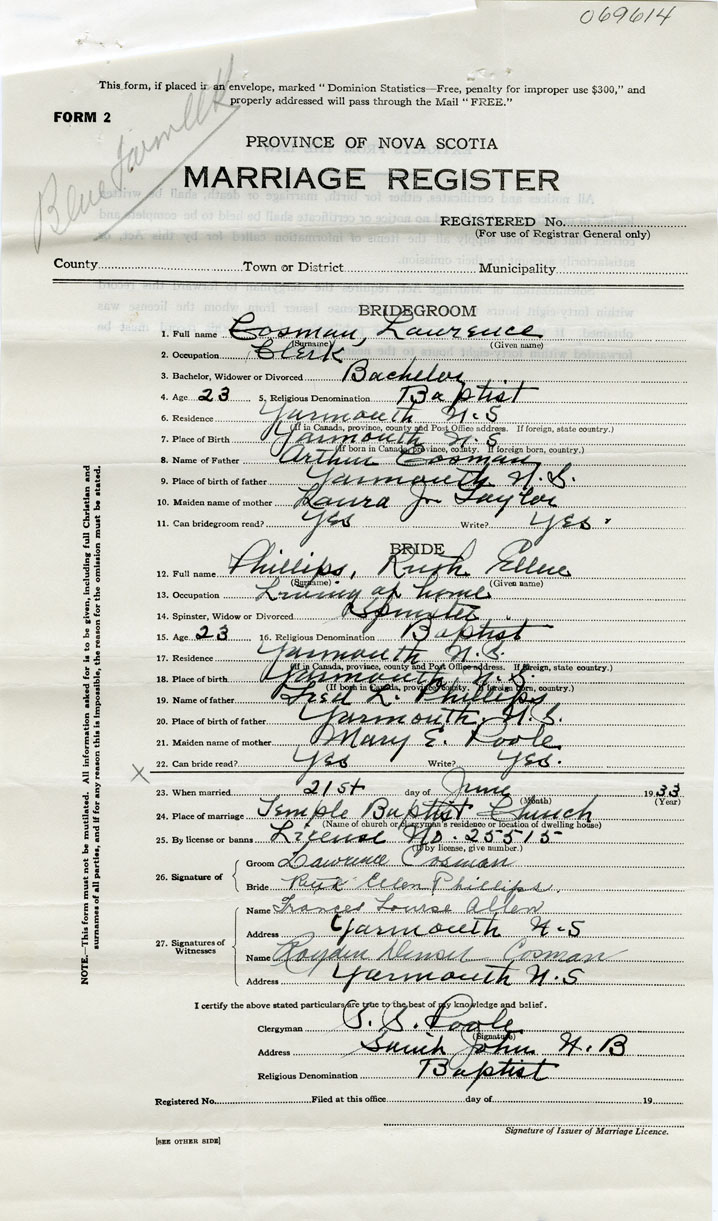 069614
This form, if placed in an envelope, marked "Dominion Statistics—Free, penalty for improper use $300," and
properly addressed will pass through the Mail "FREE."
FORM 2
PROVINCE OF NOVA SCOTIA
MARRIAGE REGISTER
REGISTERED No.
(For use of Registrar General only)
County Town or District Municipality
BRIDEGROOM
1. Full name Cosman, Lawrence
(Surname) (Given name)
2. Occupation Clerk
3. Bachelor, Widower or Divorced Bachelor
4. Age 23 5. Religious Denomination Baptist
6. Residence Yarmouth N.S
(If in Canada, province, county and Post Office address. If foreign, state country.)
7. Place of Birth Yarmouth N.S
(If born in Canada, province, county. If foreign born, country.)
8. Name of Father Arthur Cosman
9. Place of birth of father Yarmouth N.S.
10. Maiden name of mother Laura J. Taylor
11. Can bridegroom read? Yes Write? Yes.
BRIDE
12. Full name Phillips, Ruth Ellen
(Surname) (Given name)
13. Occupation Living at home
14. Spinster, Widow or Divorced Spinster
15. Age 23 16. Religious Denomination Baptist
17. Residence Yarmouth N.S.
(If in Canada, province, county and Post Office address. If foreign, state country.)
18. Place of birth Yarmouth N.S.
(If born in Canada, province, county. If foreign born, country.)
19. Name of father Fred L. Phillips
20. Place of birth of father Yarmouth, N.S.
21. Maiden name of mother Mary E. Poole
22. Can bride read? Yes Write? Yes.
X
23. When married 21st day of June 1933
(Month) (Year)
24. Place of marriage Temple Baptist Church
(Name of church or clergyman's residence or location of dwelling house)
25. By license or banns License No. 25515
(If by license, give number.)
26. Signature of
Groom Lawrence Cosman
Bride Ruth Ellen Phillips.
27. Signatures of Witnesses
Name Frances Louise Allen
Address Yarmouth N.S
Name Cosman
Address Yarmouth N.S
I certify the above stated particulars are true to the best of my knowledge and belief.
Clergyman S. S. Poole
(Signature)
Address Saint John N.B
Religious Denomination Baptist
Registered No. Filed at this office day of 19
Signature of Issuer of Marriage Licence.
[SEE OTHER SIDE]
NOTE.—This form must not be mutilated. All information asked for is to be given, including full Christian and
surnames of all parties, and if for any reason this is impossible, the reason for the omission must be stated.